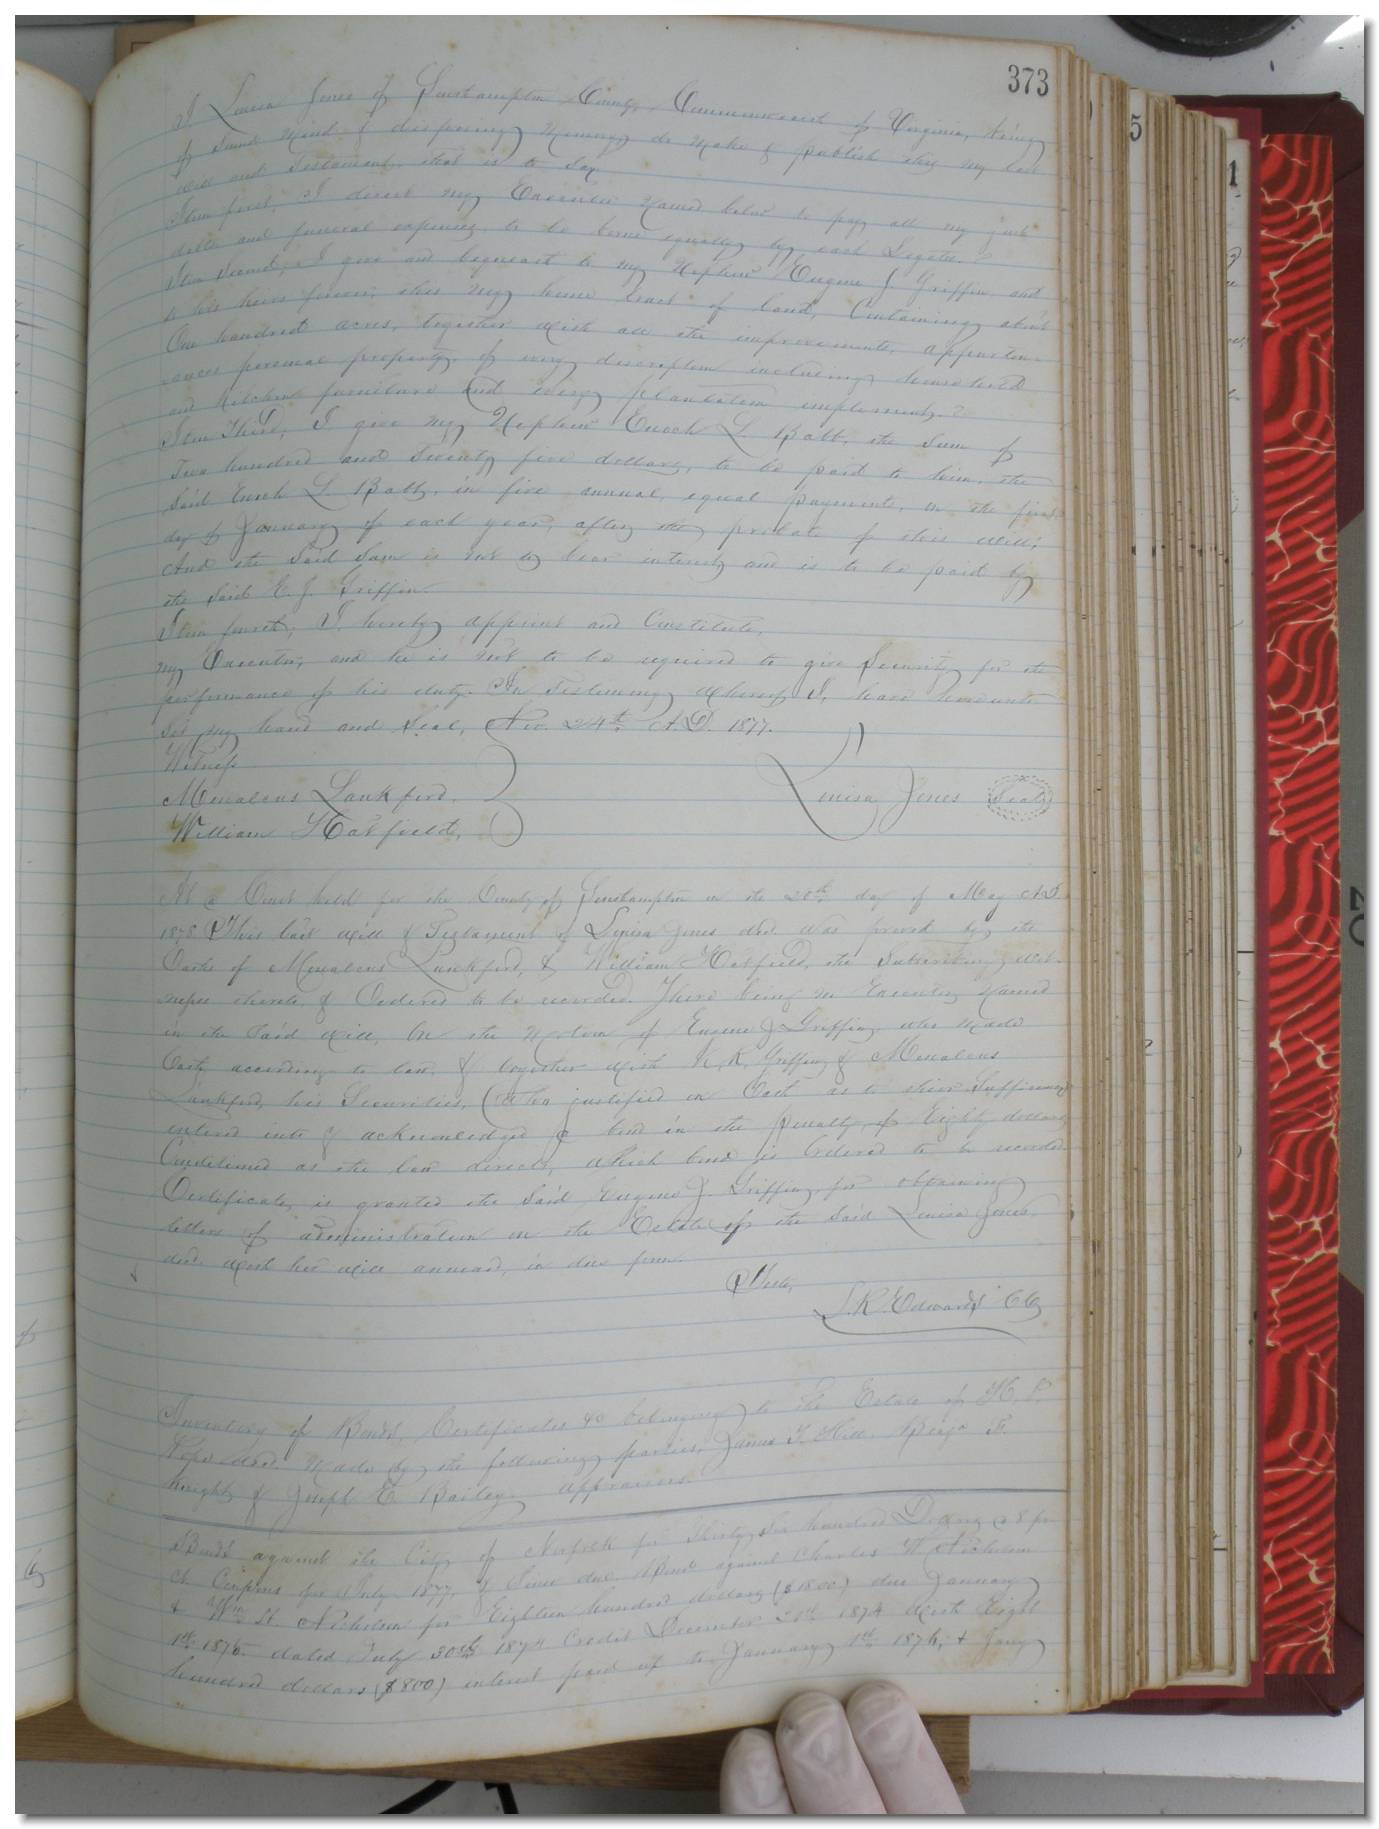 373
I Louisa Jones of Southampton County, Commonwealth of Virginia, being
of sound mind & disposing memory, do make & publish this my last
will and Testament, that is to say
Item first, I direct my Executor named below to pay all my just
debts and funeral expenses, to be borne equally by each Legatee.
Item Second; I give and bequeath to my Nephew Eugene J. Griffin and
to his heirs forever, this my home tract of land, Containing about
One hundred acres, together with all the improvements, apparten-
ances personal property of every description including household
and Kitchen furniture and every plantation implement.
Item Third, I give my Nephew Enoch L. Babb, the sum of
Two hundred and Twenty five dollars, to be paid to him, the
said Enoch L. Babb, in five annual, equal payments, on the first
day of January of each year, after the probate of this will;
And the said Sum is not to bear interest and is to be paid by
the said E. J. Griffin.
Item fourth, I, hereby appoint and Constitute,
my Executor, and he is not to be required to give Security for the
performance of his duty. In Testimony whereof I, have hereunto
Set my hand and Seal, Nov. 24th A.D. 1877.
Witness
Menalcus Lankford.
William Hatfield,
Louisa Jones Seal
At a Court held for the County of Southampton on the 20th day of May A.D
1878 This last will & Testament of Louisa Jones decd. was proved by the
Oaths of Menalcus Lankford, & William Hatfield, the Subscribing wit-
nesses thereto, & Ordered to be recorded. There being no Executor named
in the said will, On the Motion of Eugene J. Griffin, who made
Oath according to law, & together with Griffin & Menalcus
Lankford, his Securities, (who justified on Oath as to their Sufficiency)
entered into & acknowledged a bond in the penalty of Eighty dollars
Conditioned as the law directs, which bond is Ordered to be recorded
Certificate, is granted the said Eugene J. Griffin, for obtaining
letters of administration on the Estate of the said Louisa Jones.
decd. with her will annexed, in due form.
Teste,
L. R. Edwards CC
Inventory of Bonds, Certificates &c belonging to the Estate of
decd. made by the following parties, James T. Hill,
Knight & Joseph E. Bailey. appraisers.
Bonds against the City of Norfolk for Thirty Six hundred Dollars @ 8 pr
ct Coupons for July 1877, & Since due. Bond against Charles Nicholson
& Wm H. Nicholson for Eighteen hundred dollars ($1800) due January
1st 1875. dated July 30th 1874 Credit December 21st 1874 with Eight
hundred dollars ($800) interest paid up to January 1st 1876, &